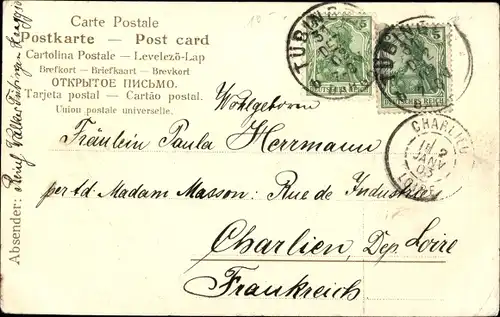 Carte Postale
Postkarte — Post card
Cartolina Postale — Levelező-Lap
Brefkort — Briefkaart — Brevkort
ОТКРЫТОЕ ПИСЬМО.
Tarjeta postal — Cartão postal.
Union postale universelle.
TÜBINGEN
5
5
DEUTSCHES REICH
DEUTSCHES REICH
Wohlgeboren
Fräulein Paula Herrmann
per td. Madam Masson: Rue de Industrie
Charlien, Dep Loire
Frankreich
CHARLIEU
2
JANV
03
LOIRE
Absender:
Tübingen